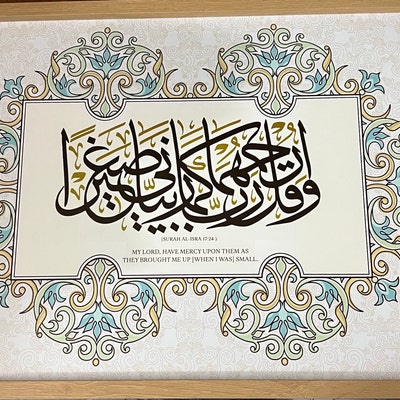 وقل رب ارحمهما كما ربياني صغيرا
(SURAH AL-ISRA 17:24 )
MY LORD, HAVE MERCY UPON THEM AS
THEY BROUGHT ME UP [WHEN I WAS] SMALL.